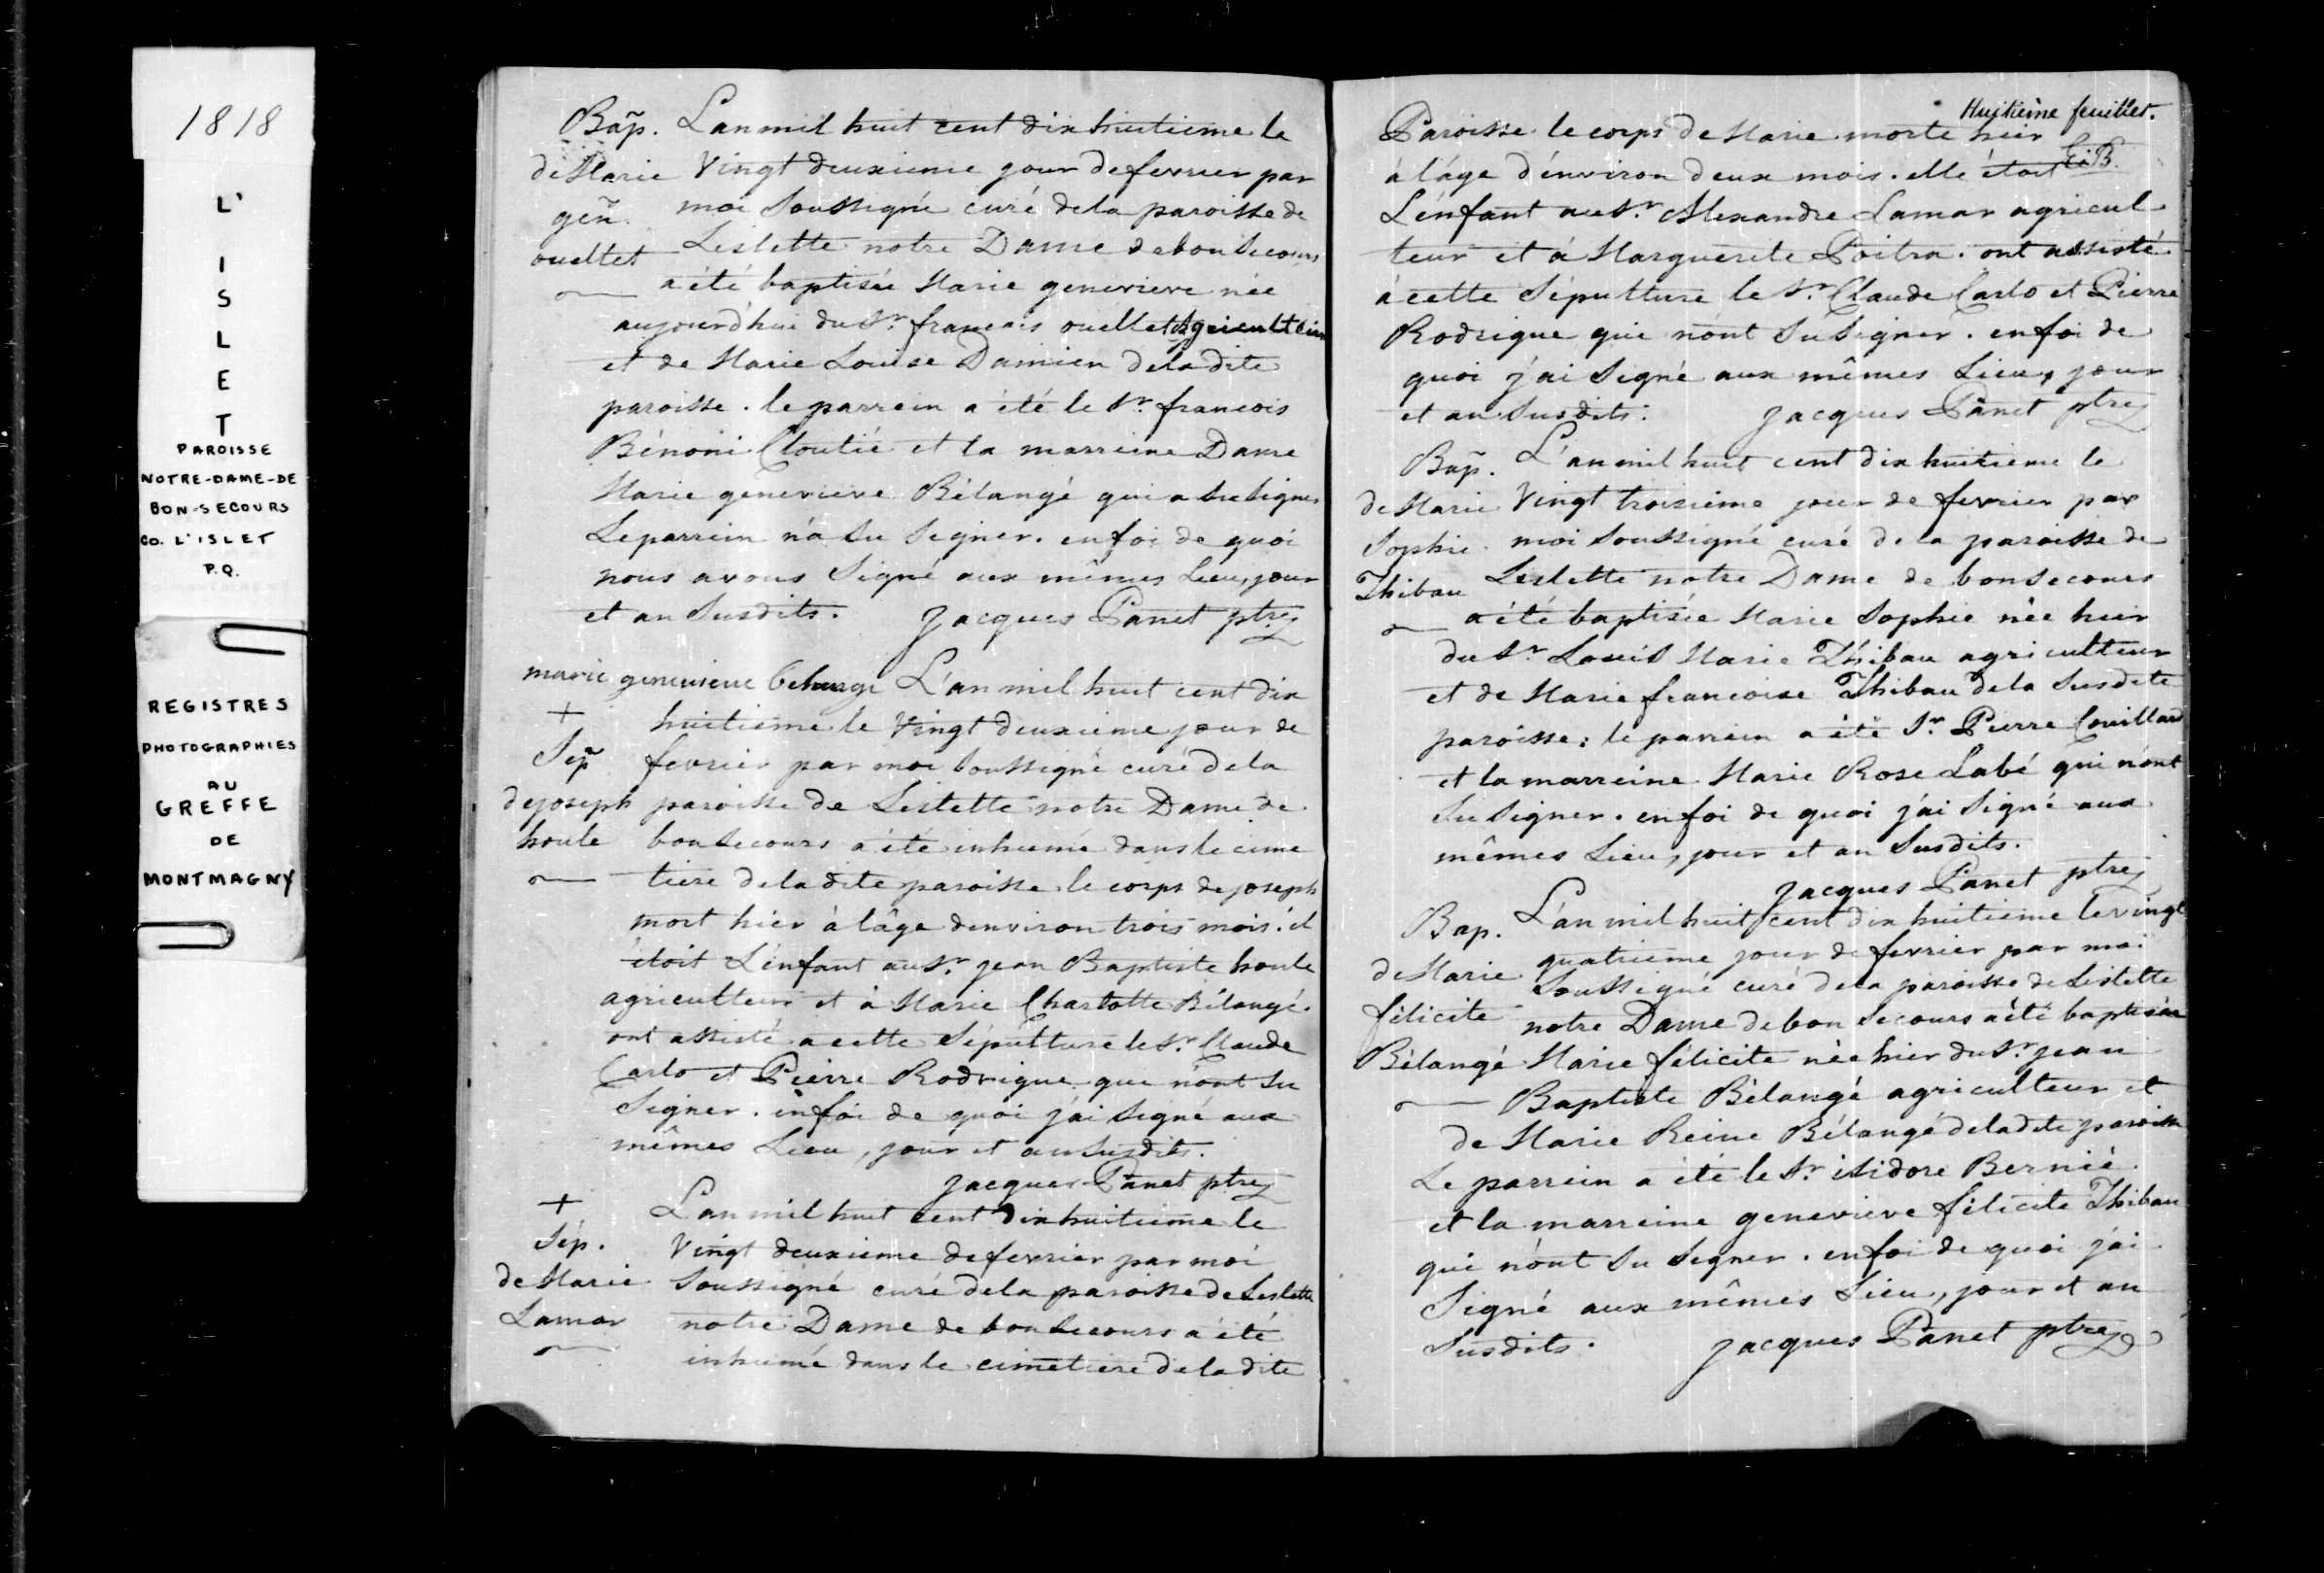 1818
L'
I
S
L
E
T
PAROISSE
NOTRE-DAME-DE
BON-SECOURS
CO. L'ISLET
P.Q.
REGISTRES
PHOTOGRAPHIES
AU
GREFFE
DE
MONTMAGNY
Bap̃. L'an mil huit cent dix huitieme le
de Marie Vingt deuxieme jour de fevrier par
geñ. moi Soussigné curé de la paroisse de
ouellet Leslette notre Dame de bon Secours
a été baptisée Marie genevieve née
aujourd'hui du Sr. francois ouellet Agriculteur
et de Marie Louise Damien de la dite
paroisse. le parrein a été le Sr. francois
Bénoni Cloutié et la marreine Dame
Marie genevieve Bélangé qui a Su Signer
Le parrein n'a Su Signer. en foi de quoi
nous avons Signé aux mêmes Lieu, jour
et an Susdits. Jacques Panet ptre
marie genevieve belange L'an mil huit cent dix
+ huitieme le Vingt deuxieme jour de
Sep̃ fevrier par moi Soussigné curé de la
de joseph paroisse de Leslette notre Dame de
houle bon Secours a été inhumé dans le cime
tiere de la dite paroisse le corps de joseph
mort hier à l'âge d'environ trois mois. il
étoit L'enfant au Sr. jean Baptiste houle
agriculteur et à Marie Charlotte Bélangé.
ont assisté a cette Sépulture le Sr. Claude
Carlo et Pierre Rodrigue que n'ont Su
Signer. en foi de quoi j'ai Signé aux
mêmes Lieu, jour et an Susdits.
Jacques Panet ptre
+ L'an mil huit cent dix huitieme le
Sép. Vingt deuxieme de fevrier par moi
de Marie Soussigné curé de la paroisse de Leslette
Lamar notre Dame de bon Secours a été
inhumé dans le cimetiere de la dite
Huitième feuillet.
Paroisse le corps de Marie morte hier
à l'âge d'environ deux mois. elle étoit
L'enfant au Sr. Alexandre Lamar agricul
teur et à Marguerite Poitra. ont assisté
à cette Sépulture le Sr. Claude Carlo et Pierre
Rodrigue qui n'ont Su Signer. en foi de
quoi j'ai Signé aux mêmes Lieu, jour
et an Susdits. Jacques Panet ptre
Bap̃. L'an mil huit cent dix huitieme le
de Marie Vingt troisieme jour de fevrier par
Sophie moi Soussigné curé de la paroisse de
Thibau Leslette notre Dame de bon Secours
a été baptisée Marie Sophie née hier
du Sr. Louis Marie Thibau agriculteur
et de Marie francoise Thibau de la Susdite
paroisse: le parrein a été Sr. Pierre Couillard
et la marreine Marie Rose Labé qui n'ont
Su Signer. en foi de quoi j'ai Signé aux
mêmes Lieu, jour et an Susdits.
Jacques Panet ptre
Bap. L'an mil huit cent dix huitieme le vingt
de Marie quatrieme jour de fevrier par moi
Soussigné curé de la paroisse de Leslette
félicite notre Dame de bon Secours a été baptisée
Bélangé Marie félicite née hier du Sr. jean
Baptiste Bélangé agriculteur et
de Marie Reine Bélangé de la dite paroisse
Le parrein a été le Sr. isidore Bernié
et la marreine genevieve félicite Thibau
qui n'ont Su Signer. en foi de quoi j'ai
Signé aux mêmes Lieu, jour et an
Susdits. Jacques Panet ptre